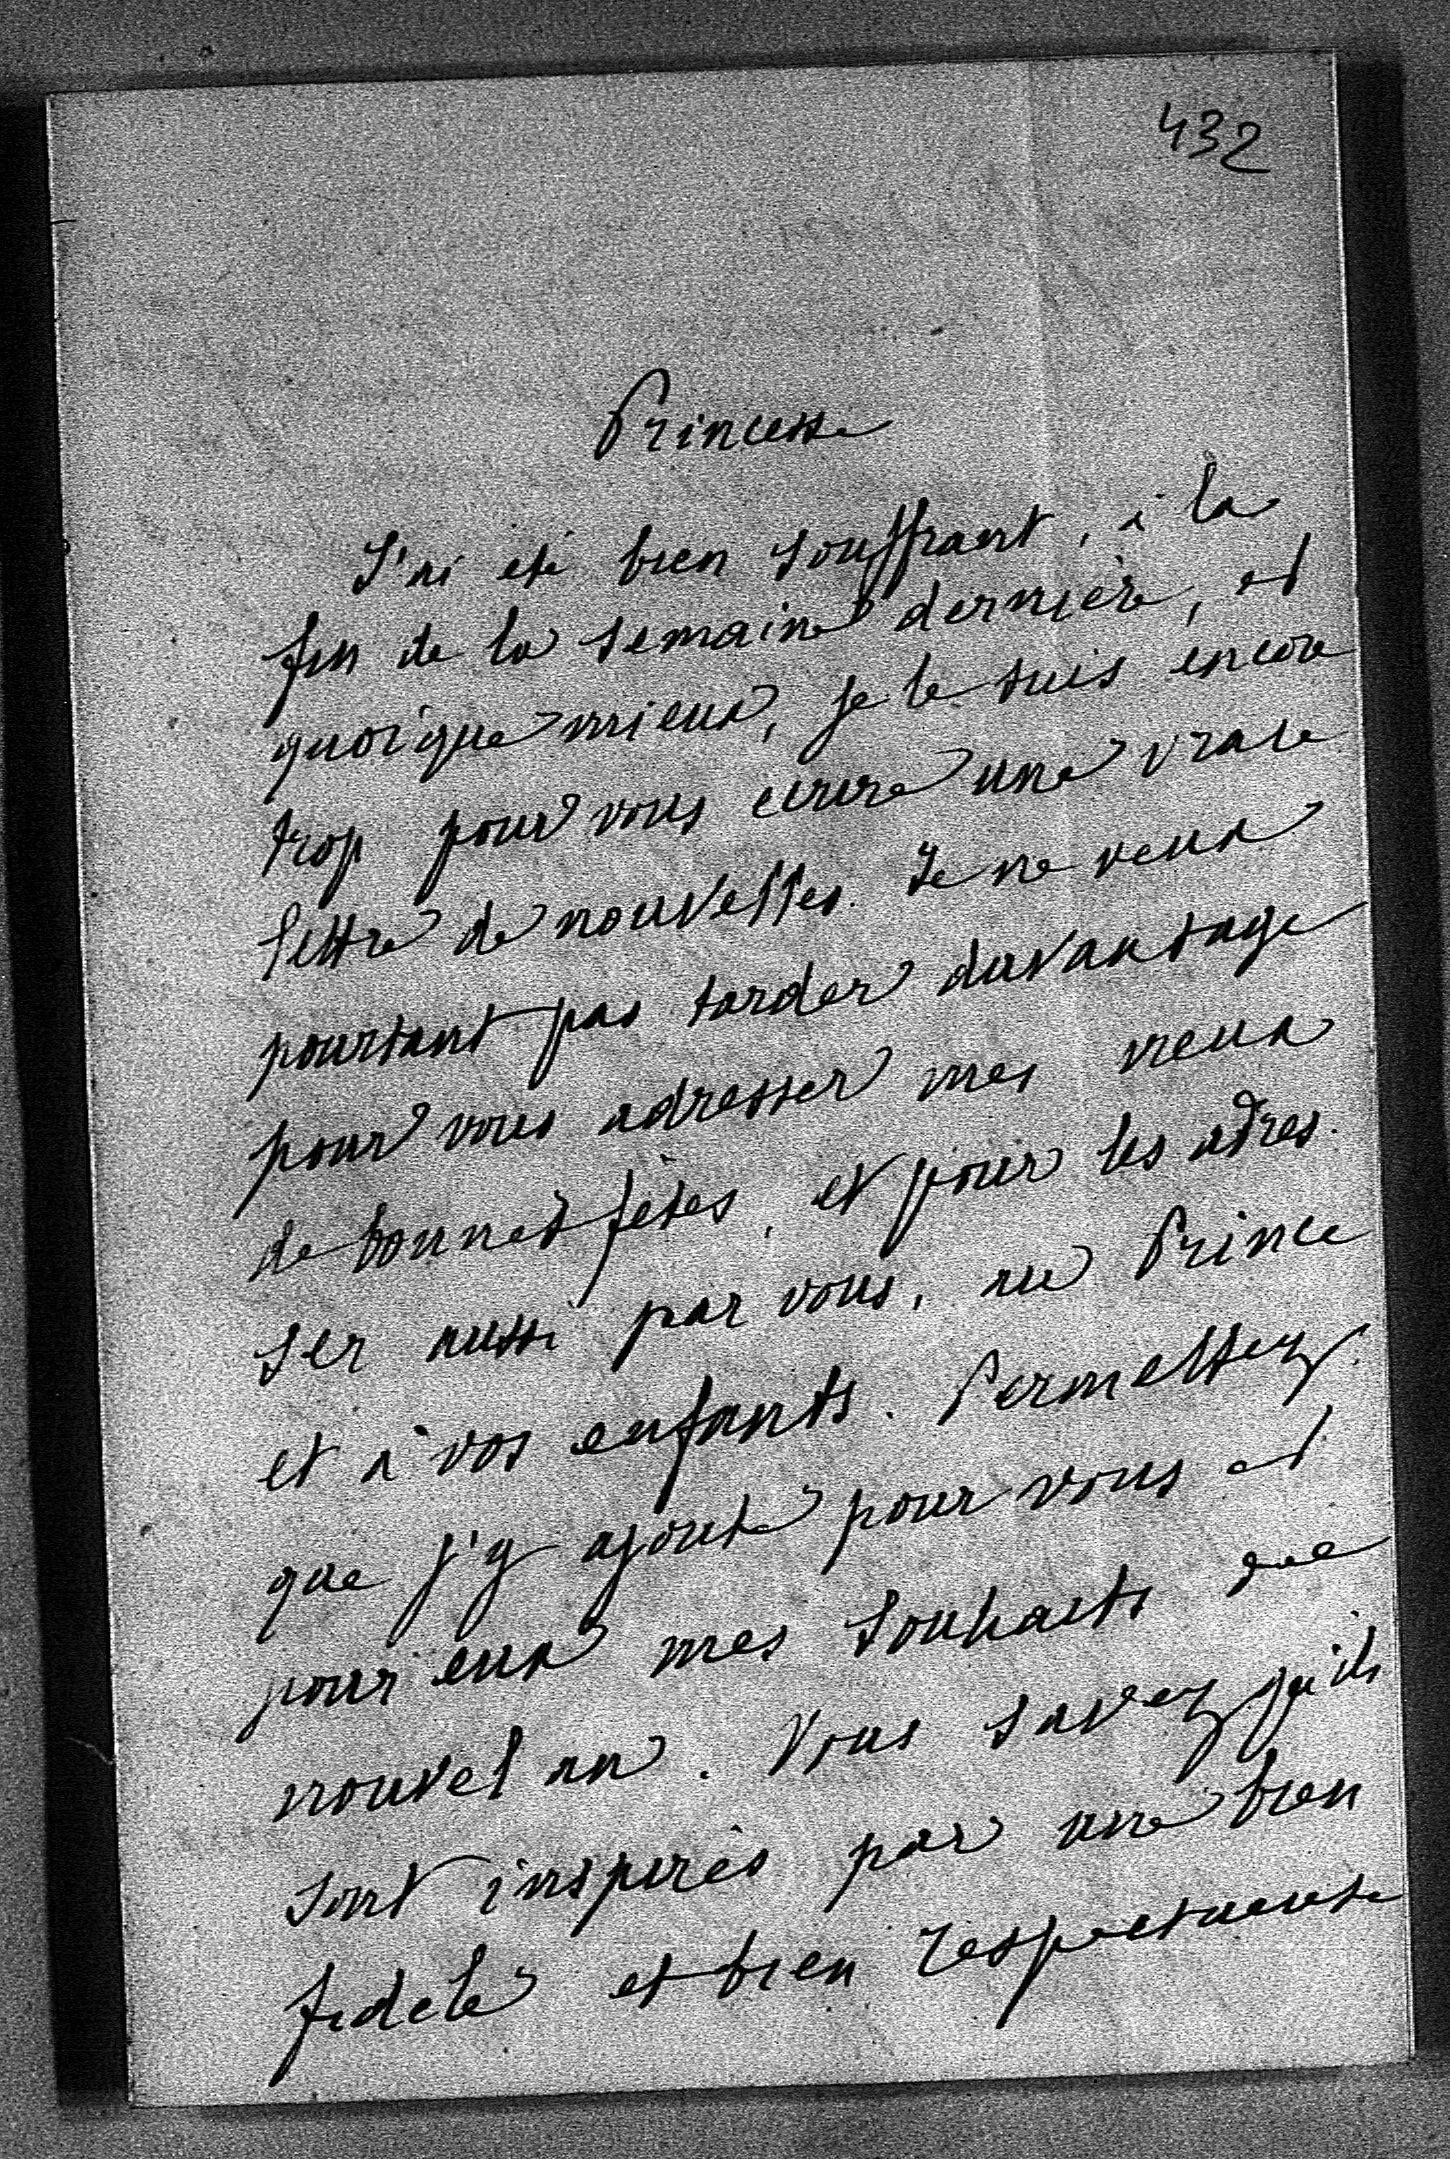 432
Princesse
J'ai été bien souffrant, à la
fin de la semaine dernière, et
quoique mieux, je le suis encore
trop pour vous écrire une vraie
lettre de nouvelles. Je ne veux
pourtant pas tarder davantage
pour vous adresser mes vœux
de bonnes fêtes, et pour les adres-
ser aussi par vous, au Prince
et à vos enfants. Permettez
que j'y ajoute pour vous et
pour eux mes souhaits de
nouvel an. Vous savez qu'ils
sont inspirés par une bien
fidèle et bien respectueuse